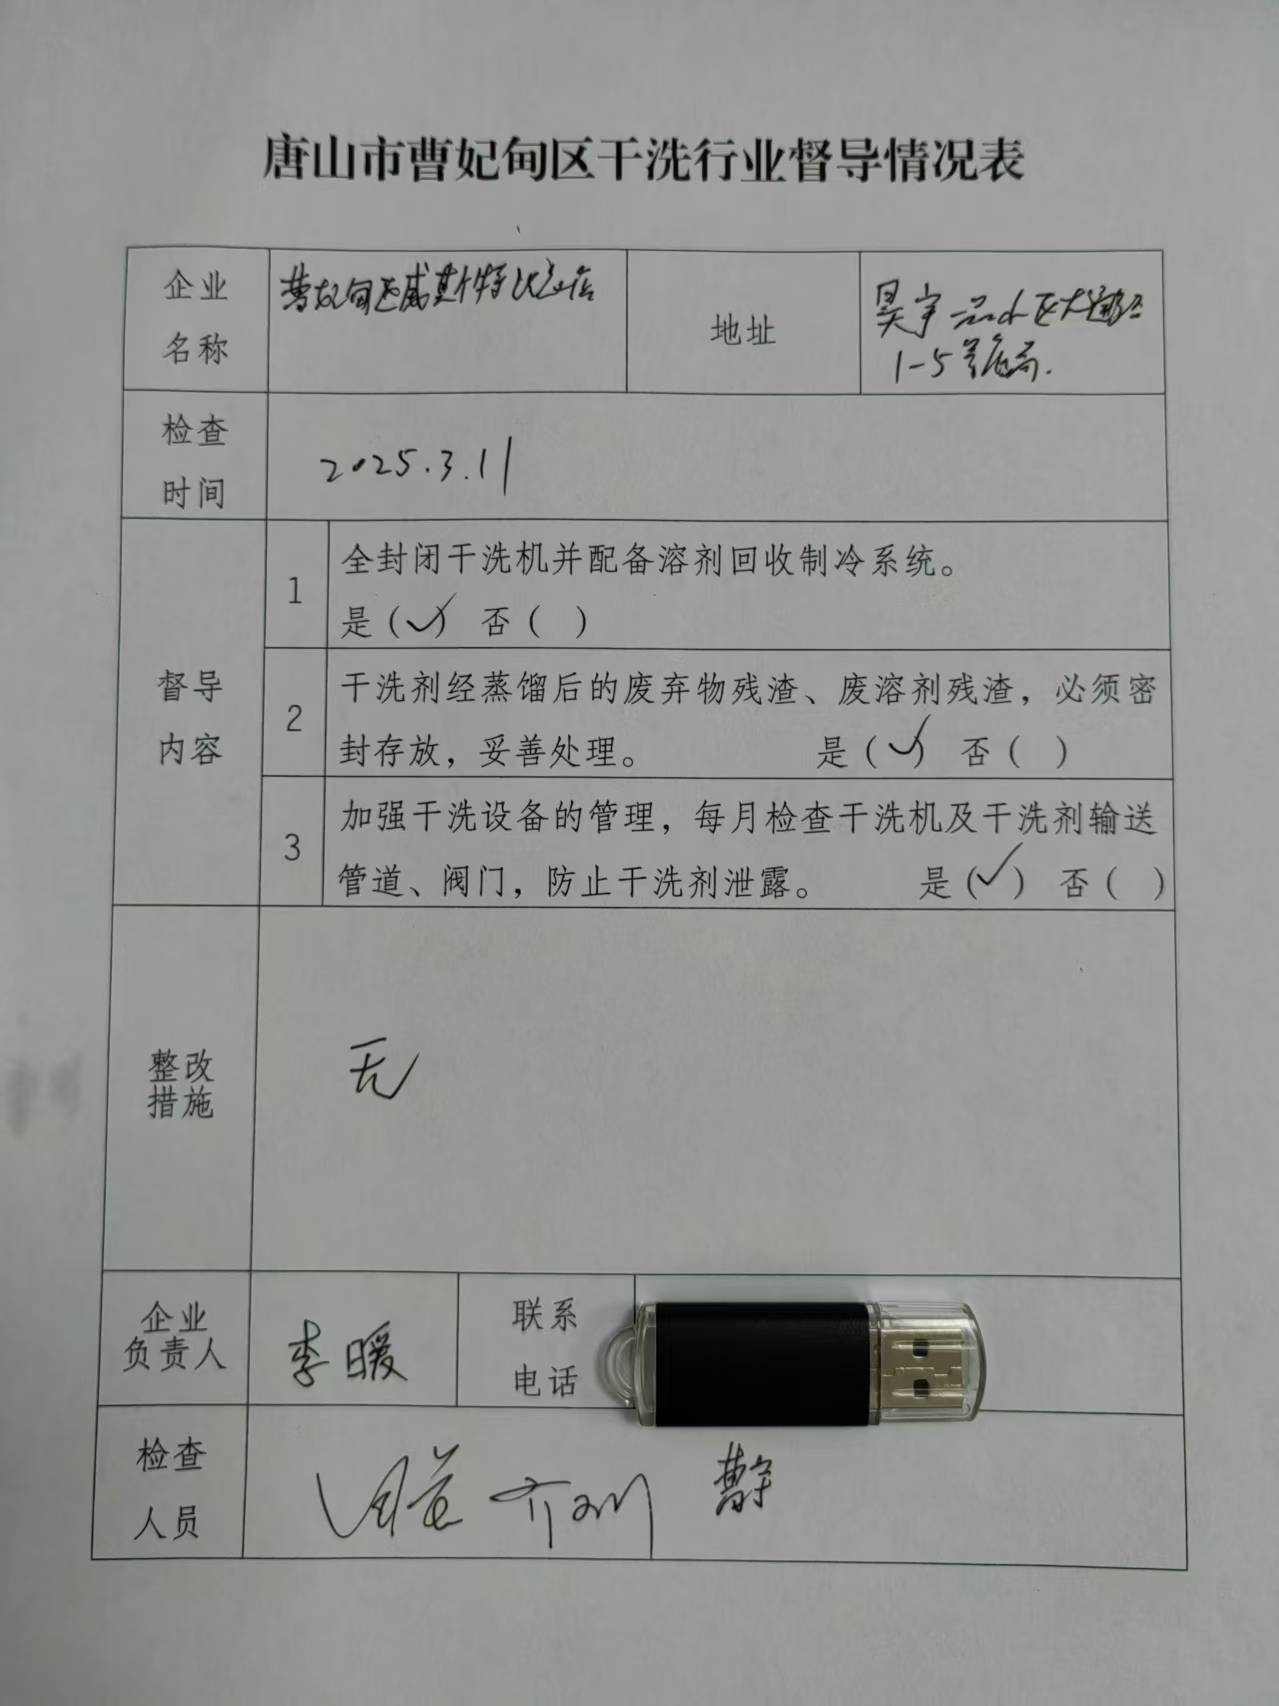 唐山市曹妃甸区干洗行业督导情况表
企业
名称
曹妃甸区威斯特洗衣店
地址
昊宇
1-5号底商.
检查
时间
2025.3.11
督导
内容
1
全封闭干洗机并配备溶剂回收制冷系统。
是(✓) 否( )
2
干洗剂经蒸馏后的废弃物残渣、废溶剂残渣，必须密
封存放，妥善处理。 是(✓) 否( )
3
加强干洗设备的管理，每月检查干洗机及干洗剂输送
管道、阀门，防止干洗剂泄露。 是(✓) 否( )
整改
措施
无
企业
负责人
李暖
联系
电话
检查
人员
曹宇